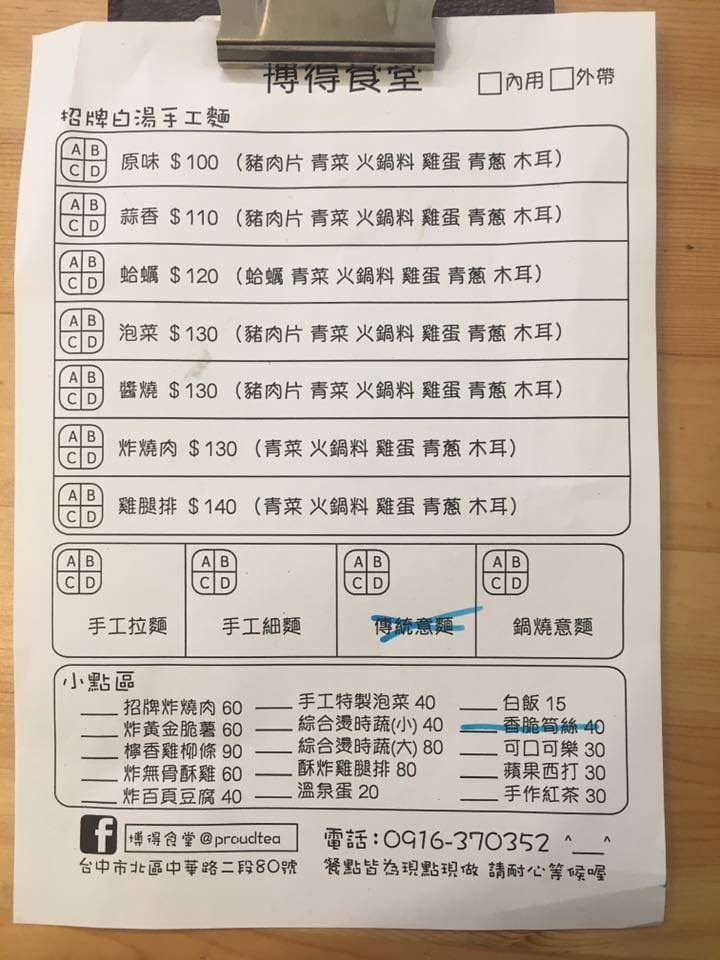 博得食堂 □內用 □外帶
招牌白湯手工麵
A B
C D
原味 $100 (豬肉片 青菜 火鍋料 雞蛋 青蔥 木耳)
A B
C D
蒜香 $110 (豬肉片 青菜 火鍋料 雞蛋 青蔥 木耳)
A B
C D
蛤蠣 $120 (蛤蠣 青菜 火鍋料 雞蛋 青蔥 木耳)
A B
C D
泡菜 $130 (豬肉片 青菜 火鍋料 雞蛋 青蔥 木耳)
A B
C D
醬燒 $130 (豬肉片 青菜 火鍋料 雞蛋 青蔥 木耳)
A B
C D
炸燒肉 $130 (青菜 火鍋料 雞蛋 青蔥 木耳)
A B
C D
雞腿排 $140 (青菜 火鍋料 雞蛋 青蔥 木耳)
A B
C D
手工拉麵
A B
C D
手工細麵
A B
C D
傳統意麵
A B
C D
鍋燒意麵
小點區
___ 招牌炸燒肉 60
___ 炸黃金脆薯 60
___ 檸香雞柳條 90
___ 炸無骨酥雞 60
___ 炸百頁豆腐 40
___ 手工特製泡菜 40
___ 綜合燙時蔬(小) 40
___ 綜合燙時蔬(大) 80
___ 酥炸雞腿排 80
___ 溫泉蛋 20
___ 白飯 15
___ 香脆筍絲 40
___ 可口可樂 30
___ 蘋果西打 30
___ 手作紅茶 30
f 博得食堂@proudtea
台中市北區中華路二段80號
電話:0916-370352 ^___^
餐點皆為現點現做 請耐心等候喔